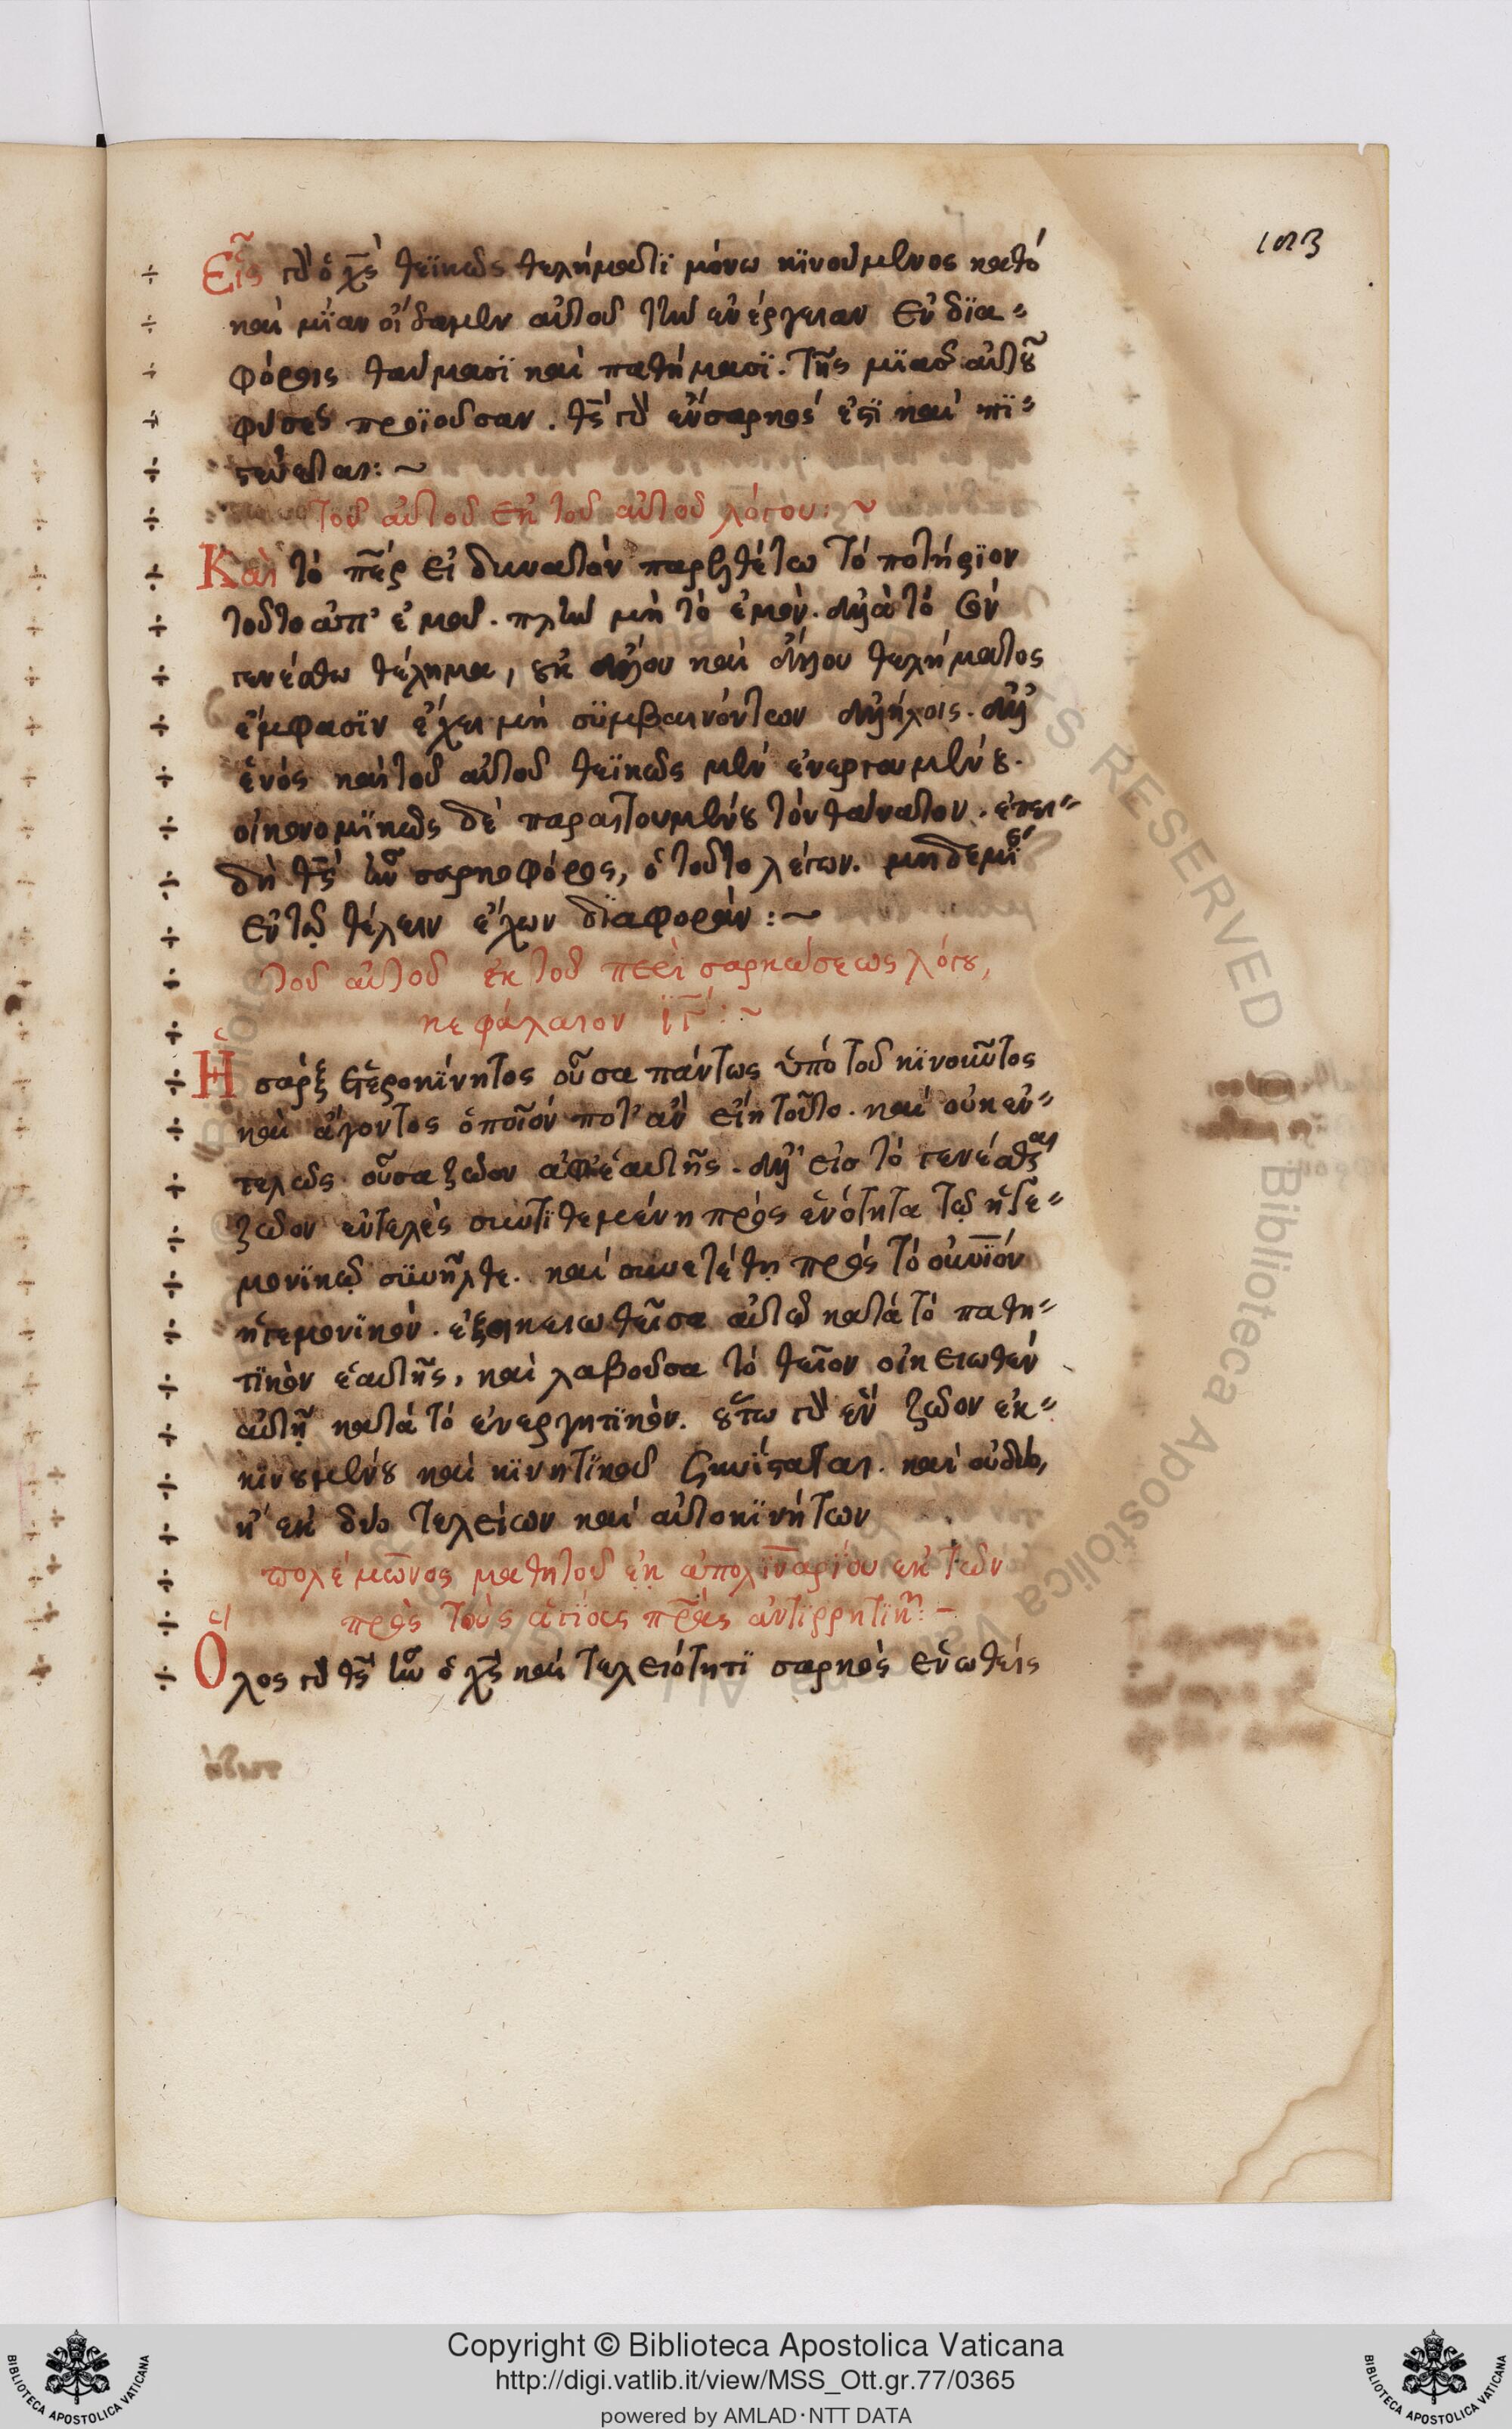 183
Εἷς γὰρ ὁ χ̅ς θεϊκῶς θελήματϊ μόνω κϊνούμενος καθὸ
καὶ μΐαν οἴδαμεν αὐτοῦ τὴν ἐνέργειαν ἐν δϊα-
φόροις θαύμασϊ καὶ παθήμασϊ. τῆς μϊᾶς αὐτοῦ
φύσεως προϊοῦσαν. θ̅ς γὰρ ἔνσαρκος ἐστϊ καὶ πϊ-
στεύεται:~
Τοῦ αὐτοῦ ἐκ τοῦ αὐτοῦ λόγου:~
Καὶ τὸ π̅ερ εἰ δυνατὸν παρελθέτω τὸ ποτήρϊον
τοῦτο ἀπ' ἐμοῦ. πλὴν μὴ τὸ ἐμὸν. ἀλλὰ τὸ σὸν
γενέσθω θέλημα, οὐκ ἄλλου καὶ ἄλλου θελήματος
ἔμφασϊν ἔχει μὴ σϋμβαινόντων ἀλλήλοις. ἀλλ'
ἑνὸς καὶ τοῦ αὐτοῦ θεϊκῶς μὲν ἐνεργουμένου.
οἰκονομϊκῶς δὲ παραιτουμένου τὸν θάνατον. ἐπει-
δὴ θ̅ς ἦν σαρκοφόρος, ὁ τοῦτο λέγων. μηδεμϊαν
ἐν τῷ θέλειν ἔχων δϊαφορὰν:~
τοῦ αὐτοῦ ἐκ τοῦ περὶ σαρκώσεως λόγου,
κεφάλαιον ϊγ:~
Ἡ σὰρξ ἑτεροκΐνητος οὖσα πάντως ὑπὸ τοῦ κϊνοῦντος
καὶ ἄγοντος ὁποῖόν ποτ' ἂν εἴη τοῦτο. καὶ οὐκ ἐν-
τελῶς οὖσα ζῶον ἀφ' ἑαυτῆς. ἀλλ' εἰς τὸ γενέσθαι
ζῶον ἐντελὲς συντϊθεμένη πρὸς ἑνότητα τῷ ἡγε-
μονϊκῷ σϋνῆλθε. καὶ συνετέθη πρὸς τὸ οὐνϊόν
ἡγεμονϊκὸν. ἐξοικειωθεῖσα αὐτῷ κατὰ τὸ παθη-
τϊκὸν ἑαυτῆς, καὶ λαβοῦσα τὸ θεῖον οἰκειωθὲν
αὐτῇ κατὰ τὸ ἐνεργητϊκὸν. οὕτω γὰρ ἓν ζῶον ἐκ
κϊνουμένου καὶ κϊνητϊκοῦ συνΐσταται. καὶ οὐ δύο,
ἢ ἐκ δύο τελείων καὶ αὐτοκϊνήτων
πολέμωνος μαθητοῦ ἐκ ἀπολϊναρΐου ἐκ τῶν
πρὸς τοὺς ἁγΐους π̅ρας ἀντϊρρητϊκῶν:-
Ὅλος γὰρ θ̅ς ἦν ὁ χ̅ς καὶ τελειότητϊ σαρκὸς ἑνωθεὶς
Copyright © Biblioteca Apostolica Vaticana
http://digi.vatlib.it/view/MSS_Ott.gr.77/0365
powered by AMLAD·NTT DATA